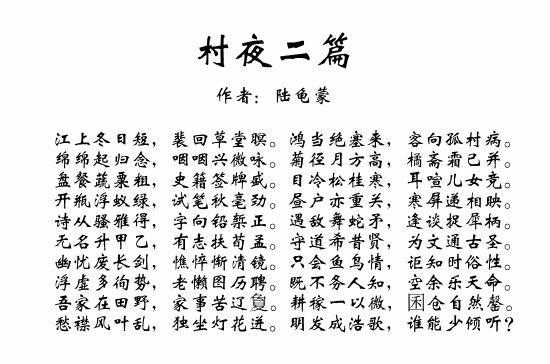 村夜二篇
作者：陆龟蒙
江上冬日短，裴回草堂暝。鸿当绝塞来，客向孤村病。
绵绵起归念，咽咽兴微咏。菊径月方高，橘斋霜已并。
盘餐蔬粟粗，史籍签牌盛。目冷松桂寒，耳喧儿女竞。
开瓶浮蚁绿，试笔秋毫劲。昼户亦重关，寒屏递相映。
诗从骚雅得，字向铅椠正。遇敌舞蛇矛，逢谈捉犀柄。
无名升甲乙，有志扶荀孟。守道希昔贤，为文通古圣。
幽忧废长剑，憔悴惭清镜。只会鱼鸟情，讵知时俗性。
浮虚多徇势，老懒图历聘。既不务人知，空余乐天命。
吾家在田野，家事苦辽敻。耕稼一以微，囷仓自然罄。
愁襟风叶乱，独坐灯花迸。明发成浩歌，谁能少倾听？